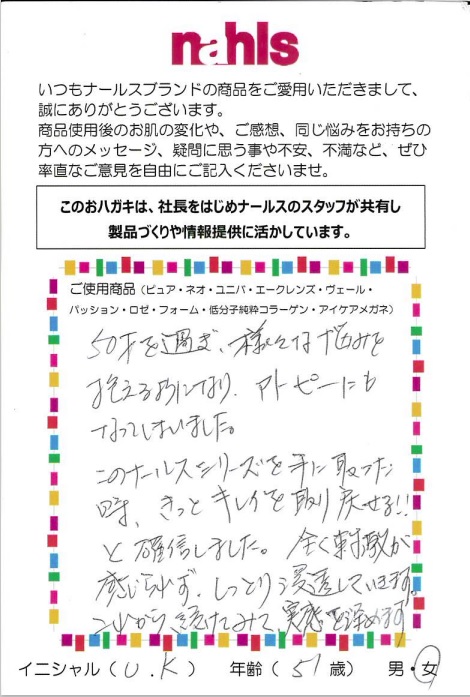 nahls
いつもナールスブランドの商品をご愛用いただきまして、
誠にありがとうございます。
商品使用後のお肌の変化や、ご感想、同じ悩みをお持ちの
方へのメッセージ、疑問に思う事や不安、不満など、ぜひ
率直なご意見を自由にご記入くださいませ。
このおハガキは、社長をはじめナールスのスタッフが共有し
製品づくりや情報提供に活かしています。
ご使用商品（ピュア・ネオ・ユニバ・エークレンズ・ヴェール・
パッション・ロゼ・フォーム・低分子純粋コラーゲン・アイケアメガネ）
50才を過ぎ、様々な悩みを
抱えるようになり、アトピーにも
なってしまいました。
このナールスシリーズを手に取った
時、きっとキレイを取り戻せる!!
と確信しました。全く刺激が
感じられず、しっとり浸透していきます。
これから続けてみて、実感を深めます
イニシャル（U.K） 年齢（51歳） 男・女